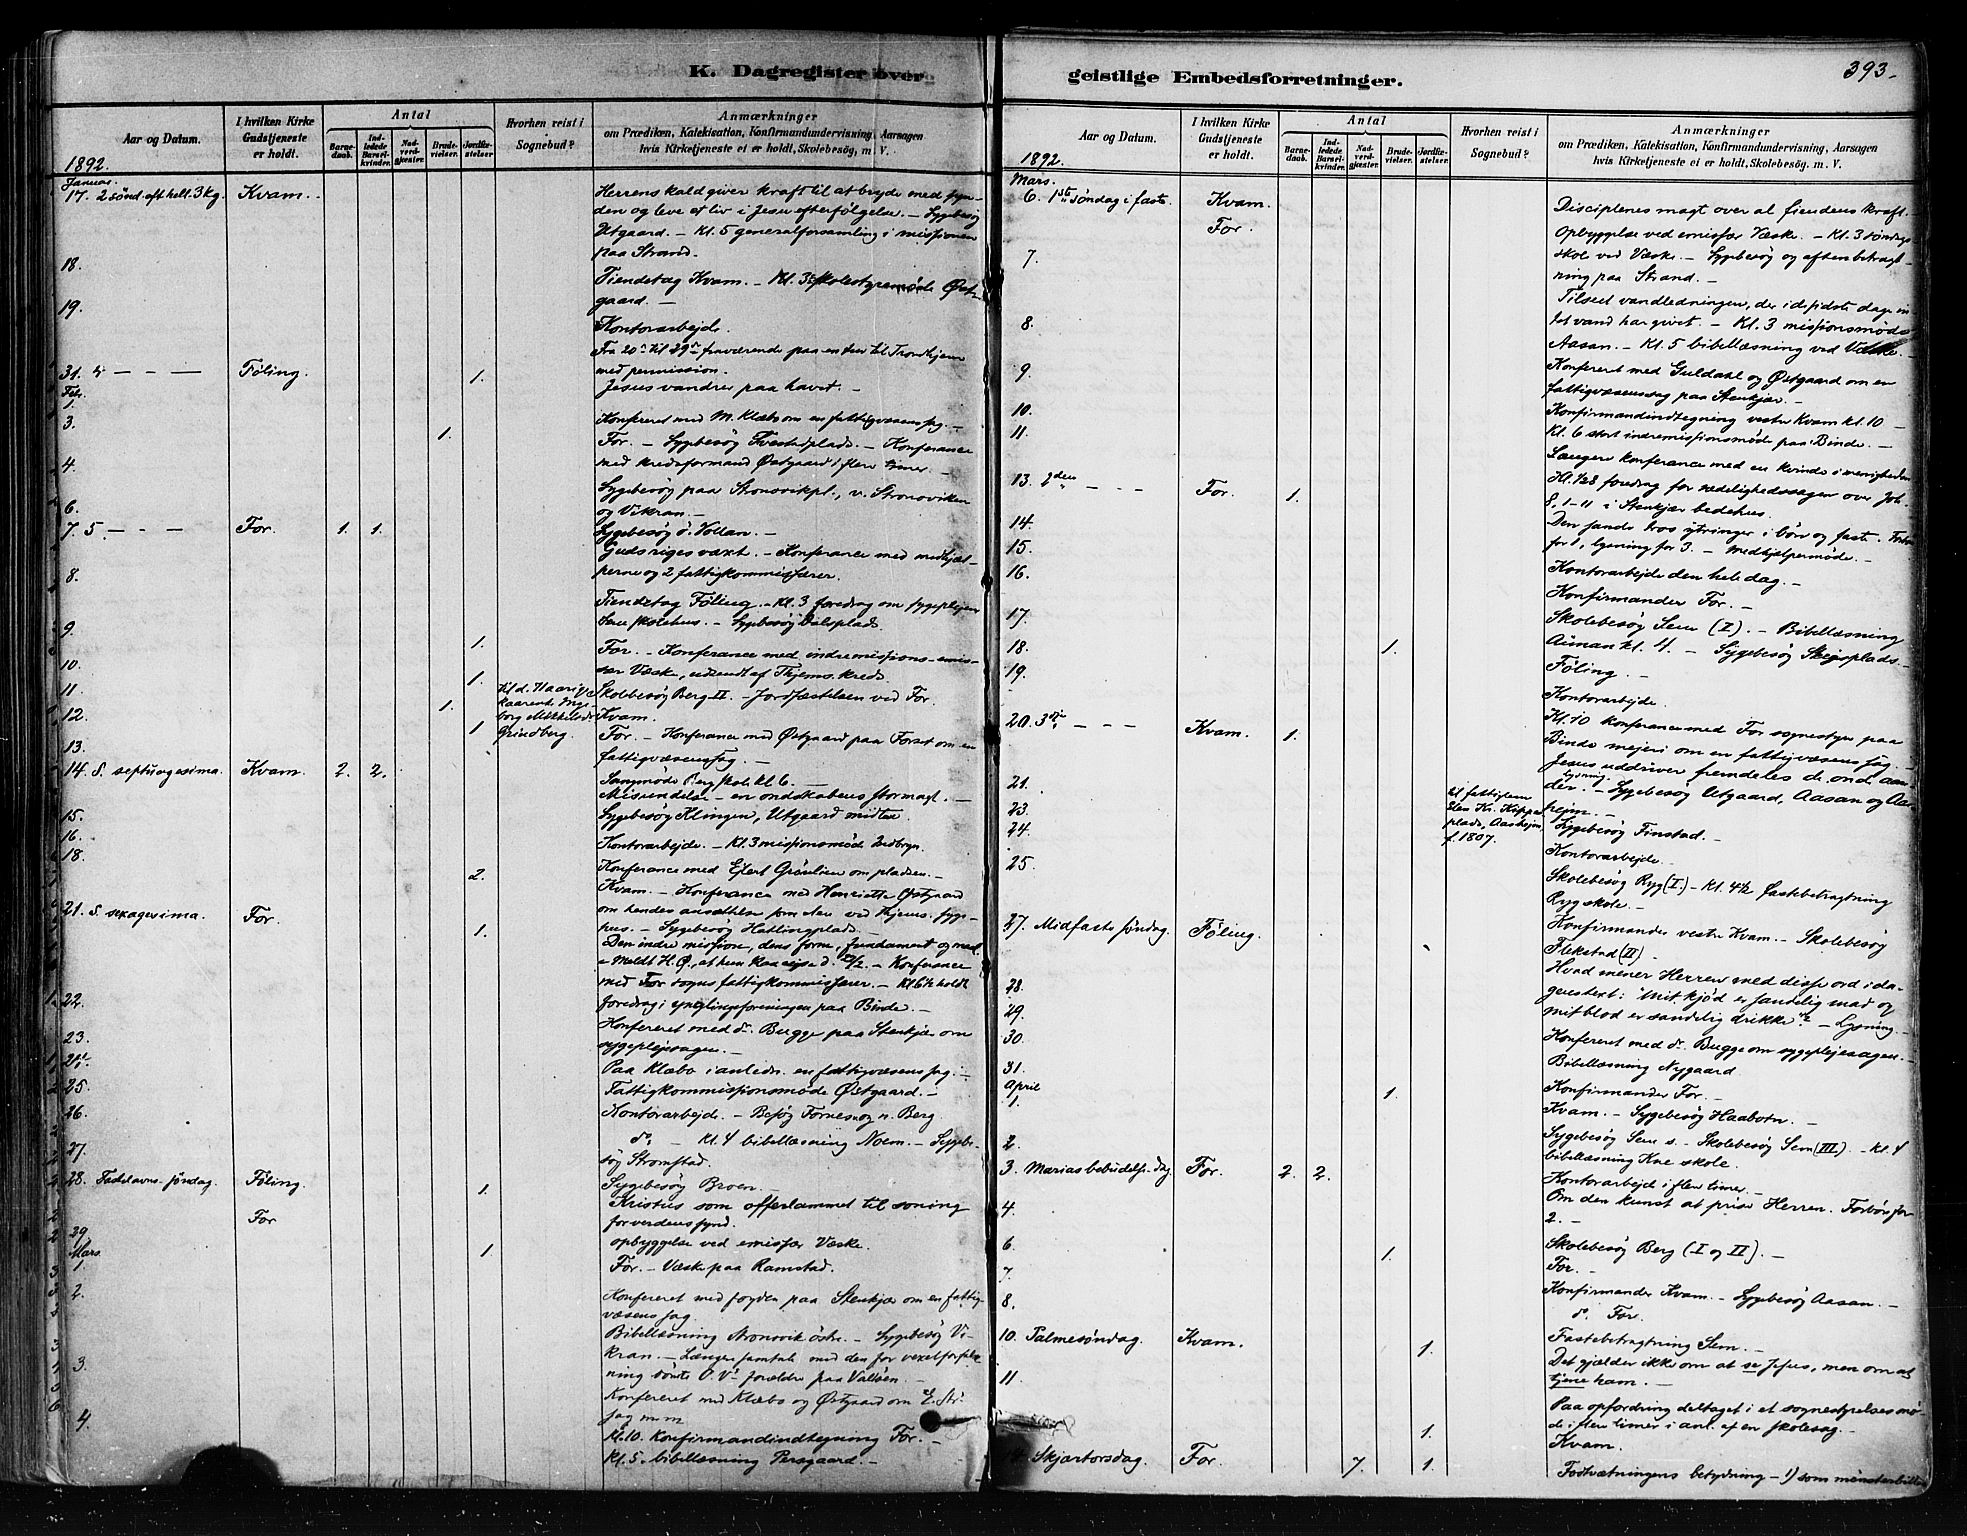 K. Dagregister over
Aar og Datum.
I hvilken Kirke Gudstjeneste er holdt.
Antal
Barnedaab.
Indledede Barselkvinder.
Nadverdgjester.
Brudevielser.
Jordfæstelser
Hvorhen reist i Sognebud?
Anmærkninger
om Prædiken, Katekisation, Konfirmandundervisning, Aarsagen
hvis Kirketjeneste ei er holdt, Skolebesög, m. V.
1892.
Januar.
17. 2 sønd. eft. hell. 3 kg. Kvam. Herrens kald giver kraft til at bryde med synden
og leve et liv i Jesu efterfølgelse. – Sygebesøg
Utgaard. – Kl. 5 generalforsamling i missionen
paa Strand.
18. Tiendetag Kvam. – Kl. 3 skolestyremøde Østgaard. –
19. Kontorarbejde.
Fra 20de til 29de fraværende paa en tur til Trondhjem
med permission.
31. 4 – – – Føling. 1. Jesus vandrer paa havet. –
Feb.
1. Konfereret med M. Klæbo om en fattigvæsenssag. –
3. 1. For. – Sygebesøg plads. – Konferance
med kredsformand Østgaard i flere timer. –
4. Sygebesøg paa Stronsvikpl., v. Stronsviken
og Vikran. –
6. Sygebesøg ø. Vollan.
7. 5 – – – For. 1. 1. Guds riges væxt. – Konferance med medhjælperne
og 2 fattigkommissærer.
8. Tiendetag Føling. – Kl. 3 foredrag om sygeplejen
Sem skolehus. – Sygebesøg Dalsplads.
9. 1. For. – Konferance med indremissions-emissær
Væske, udsendt af Thjems. kreds.
10. 1. Skolebesøg Berg II. – Jordfæstelsen ved For.
11 1. Kvam.
12. 1 Grindberg. For. – Konferance med Østgaard paa Forset om en
fattigvæsenssag. –
13. Sangmøde Berg skole kl. 6. –
14. S. septuagesima. Kvam. 2. 2. Misundelse – en ondskabens stormagt. –
15. Sygebesøg Klingen, Utgaard midtre.
16. Kontorarbejde. – Kl. 3 missionsmøde
18. 2. Konferance med Ejlert Grønlien om pladsen.
Kvam. – Konferance med Henriette Østgaard
om hendes ansættelse som elev ved Thjems. sygehus. –
Sygebesøg Hatlingplads. –
21. S. sexagesima. For. 1. Den indre mission, dens form, fundament og maal
– Meldt H. Ø., at hun kan rejse d. – Konferance
med For sogns fattigkommissærer. – Kl. 6½ holdt
foredrag i ynglingsforeningen paa Binde. –
22. Konfereret med dr. Bugge paa Stenkjær om
sygeplejesagen. –
23. Paa Klæbo i anledn. en fattigvæsenssag. –
24. Fattigkommissionsmøde Østgaard. –
25. Kontorarbejde. – Besøg Fornes og n. Berg.
26. do – Kl. 4 bibellæsning Noem. – Sygebesøg
Stromstad.
27. Sygebesøg Broen. –
28. Fastelavns søndag. Føling. 1. Kristus som offerlammet til soning
for verdens synd.
For opbyggelse ved emissær Væske.
29. 1. For. – Væske paa Ramstad.
Mars.
1. Konfereret med fogden paa Stenkjær om en fattigvæsenssag
2. Bibellæsning Stronsvik østre. – Sygebesøg Vikran. –
Længere samtale med
forældre paa Valløen. –
3. Konfereret med Klæbo og Østgaard om
sag m m
4. Kl. 10. Konfirmandindtegning For. –
Kl. 5. bibellæsning Persgaard. –
geistlige Embedsforretninger.
393.
Aar og Datum.
I hvilken Kirke Gudstjeneste er holdt.
Antal
Barnedaab.
Indledede Barselkvinder.
Nadverdgjester.
Brudevielser.
Jordfæstelser.
Hvorhen reist i Sognebud?
Anmærkninger
om Prædiken, Katekisation, Konfirmandundervisning, Aarsagen
hvis Kirketjeneste ei er holdt, Skolebesög, m. V.
1892.
Mars.
6. 1ste søndag i faste. Kvam. Disciplenes magt over al fiendens kraft.
For. Opbyggelse ved emissær Væske. – Kl. 3 søndagsskole
ved Væske. – Sygebesøg og aftenbetragtning
paa Strand. –
7. Tilseet vandledningen, der i de sidste dage intet
vand har givet. – Kl. 3 missionsmøde
Aasan. – Kl. 5 bibellæsning ved Væske. –
8. Konfereret med Guldahl og Østgaard om en
fattigvæsenssag paa Stenkjær. –
9. Konfirmandindtegning vestre Kvam kl. 10 –
10. Kl. 6 stort indremissionsmøde paa Binde. –
11. Længere konferance med en kvinde i menigheden
Kl. ½8 foredrag for sædelighedssagen over Joh.
8, 1–11 i Stenkjær bedehus.
13. 2den – – – For. 1. Den sande tros ytringer i bøn og faste. Forbøn
for 1, lysning for 3. – Medhjelpermøde. –
14. Kontorarbejde den hele dag. –
15. Konfirmander For. –
16. Skolebesøg Sem (I). – Bibellæsning
Aunan kl. 4. – Sygebesøg plads. –
17. Føling. –
18. 1. Kontorarbejde.
19. Kl. 10 konferance med For sognestyre paa
Binde mejeri om en fattigvæsenssag. –
20. 3die – – – Kvam. 1. Jesus uddriver fremdeles de onde aander.
lysning. – Sygebesøg Utgaard, Aasan og Aashejm. –
21. Sygebesøg Finstad. –
23. Kontorarbejde. –
24. f. 1807. Skolebesøg Ryg (I.) – Kl. 4½ fastebetragtning
Ryg skole. –
25. Konfirmander vestre Kvam. – Skolebesøg
Flekstad (II). –
27. Midfaste søndag. Føling. Hvad mener Herren med disse ord i dagens
text: "Mit kjød er sandelig mad og
mit blod er sandelig drikke"? – Lysning. –
28. Konfereret med dr. Bugge om sygeplejesagen. –
29. Bibellæsning Nygaard.
30. Konfirmander For. –
31. Kvam. – Sygebesøg Haaboten. –
April
1. 1. Sygebesøg Sem s. – Skolebesøg Sem (III). – Kl. 4
bibellæsning Kne skole.
2. Kontorarbejde i flere timer. –
3. Marias bebudelses dag For. 2. 2. Om den kunst at prise Herren. Forbøn for
2. –
4. Skolebesøg Berg (I og II). –
6. 1. For. –
7. Konfirmander Kvam. – Sygebesøg Aasan. –
8. do. For.
Fastebetragtning Sem. –
10. Palmesøndag. Kvam. 1. Det gjælder ikke om at se Jesus, men om at
tjene ham. –
11 Paa opfordring deltaget i et sognestyresmøde
i flere timer i anl. af en skolesag. –
1. Kvam.
14. Skjærtorsdag. For. 7. 1. Fodtvætningens betydning – 1) som mønsterbillede